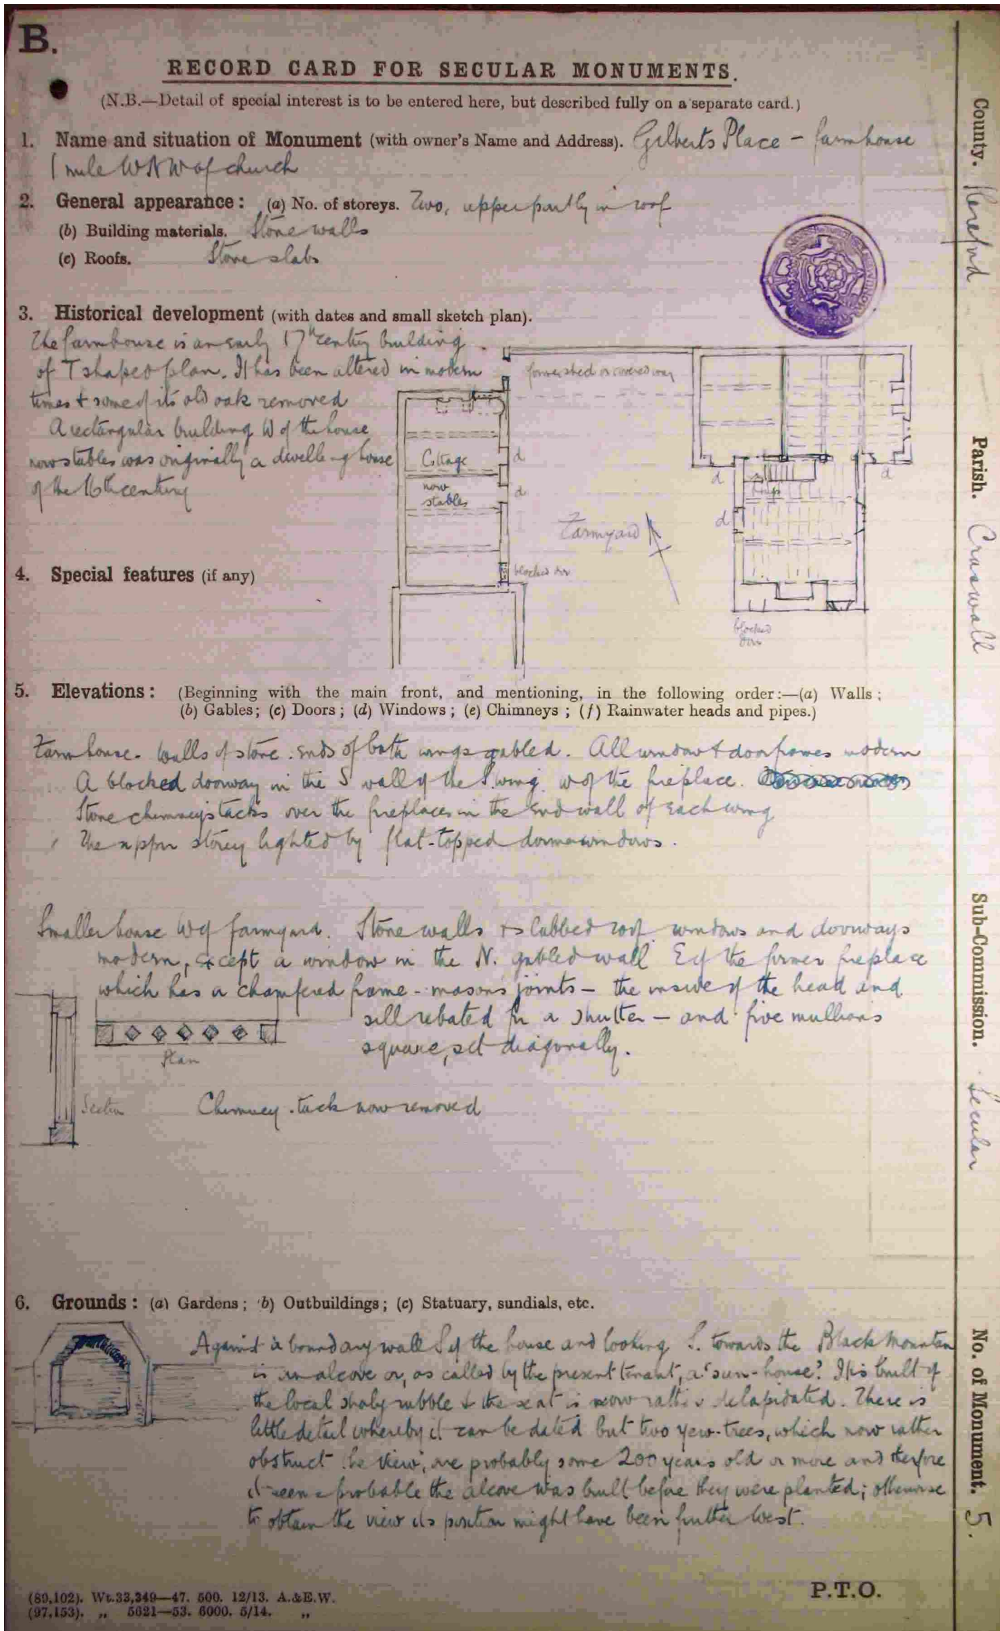 B.
RECORD CARD FOR SECULAR MONUMENTS.
(N.B.—Detail of special interest is to be entered here, but described fully on a separate card.)
1. Name and situation of Monument (with owner's Name and Address). Gilberts Place – farmhouse
1 mile WNW of church
2. General appearance: (a) No. of storeys. Two, upper partly in roof
(b) Building materials. Stone walls
(c) Roofs. Stone slabs
3. Historical development (with dates and small sketch plan).
The farmhouse is an early 17th century building
of T shaped plan. It has been altered in modern
times & some of its old oak removed
A rectangular building W of the house
now stables was originally a dwelling house
of the 16th century
former shed or covered way
Cottage
now
stables
d
d
blocked door
Farmyard
d
d
d
blocked
door
4. Special features (if any)
5. Elevations: (Beginning with the main front, and mentioning, in the following order:—(a) Walls;
(b) Gables; (c) Doors; (d) Windows; (e) Chimneys; (f) Rainwater heads and pipes.)
Farmhouse. Walls of stone. ends of both wings gabled. All window & doorframes modern
A blocked doorway in the S wall of the S wing. W of the fireplace.
Stone chimneystacks over the fireplaces in the end wall of each wing
The upper storey lighted by flat-topped dormer windows.
Smaller house W of farmyard. Stone walls & slabbed roof windows and doorways
modern, except a window in the N. gabled wall E of the former fireplace
which has a chamfered frame – masons joints – the inside of the head and
sill rebated for a shutter – and five mullions
square, set diagonally.
Plan
Section
Chimney stack now removed
6. Grounds: (a) Gardens; (b) Outbuildings; (c) Statuary, sundials, etc.
Against a boundary wall S of the house and looking S. towards the Black Mountain
is an alcove or, as called by the present tenant, a 'sun-house'. It is built of
the local shaly rubble & the seat is now rather delapidated. There is
little detail whereby it can be dated but two yew-trees, which now rather
obstruct the view, are probably some 200 years old or more and therefore
it seems probable the alcove was built before they were planted; otherwise
to obtain the view its position might have been further West.
P.T.O.
(89,102). Wt.33,349—47. 500. 12/13. A.&E.W.
(97,153). „ 5621—53. 6000. 5/14. „
County. Hereford
Parish. Craswall
Sub-Commission. Secular
No. of Monument. 5.